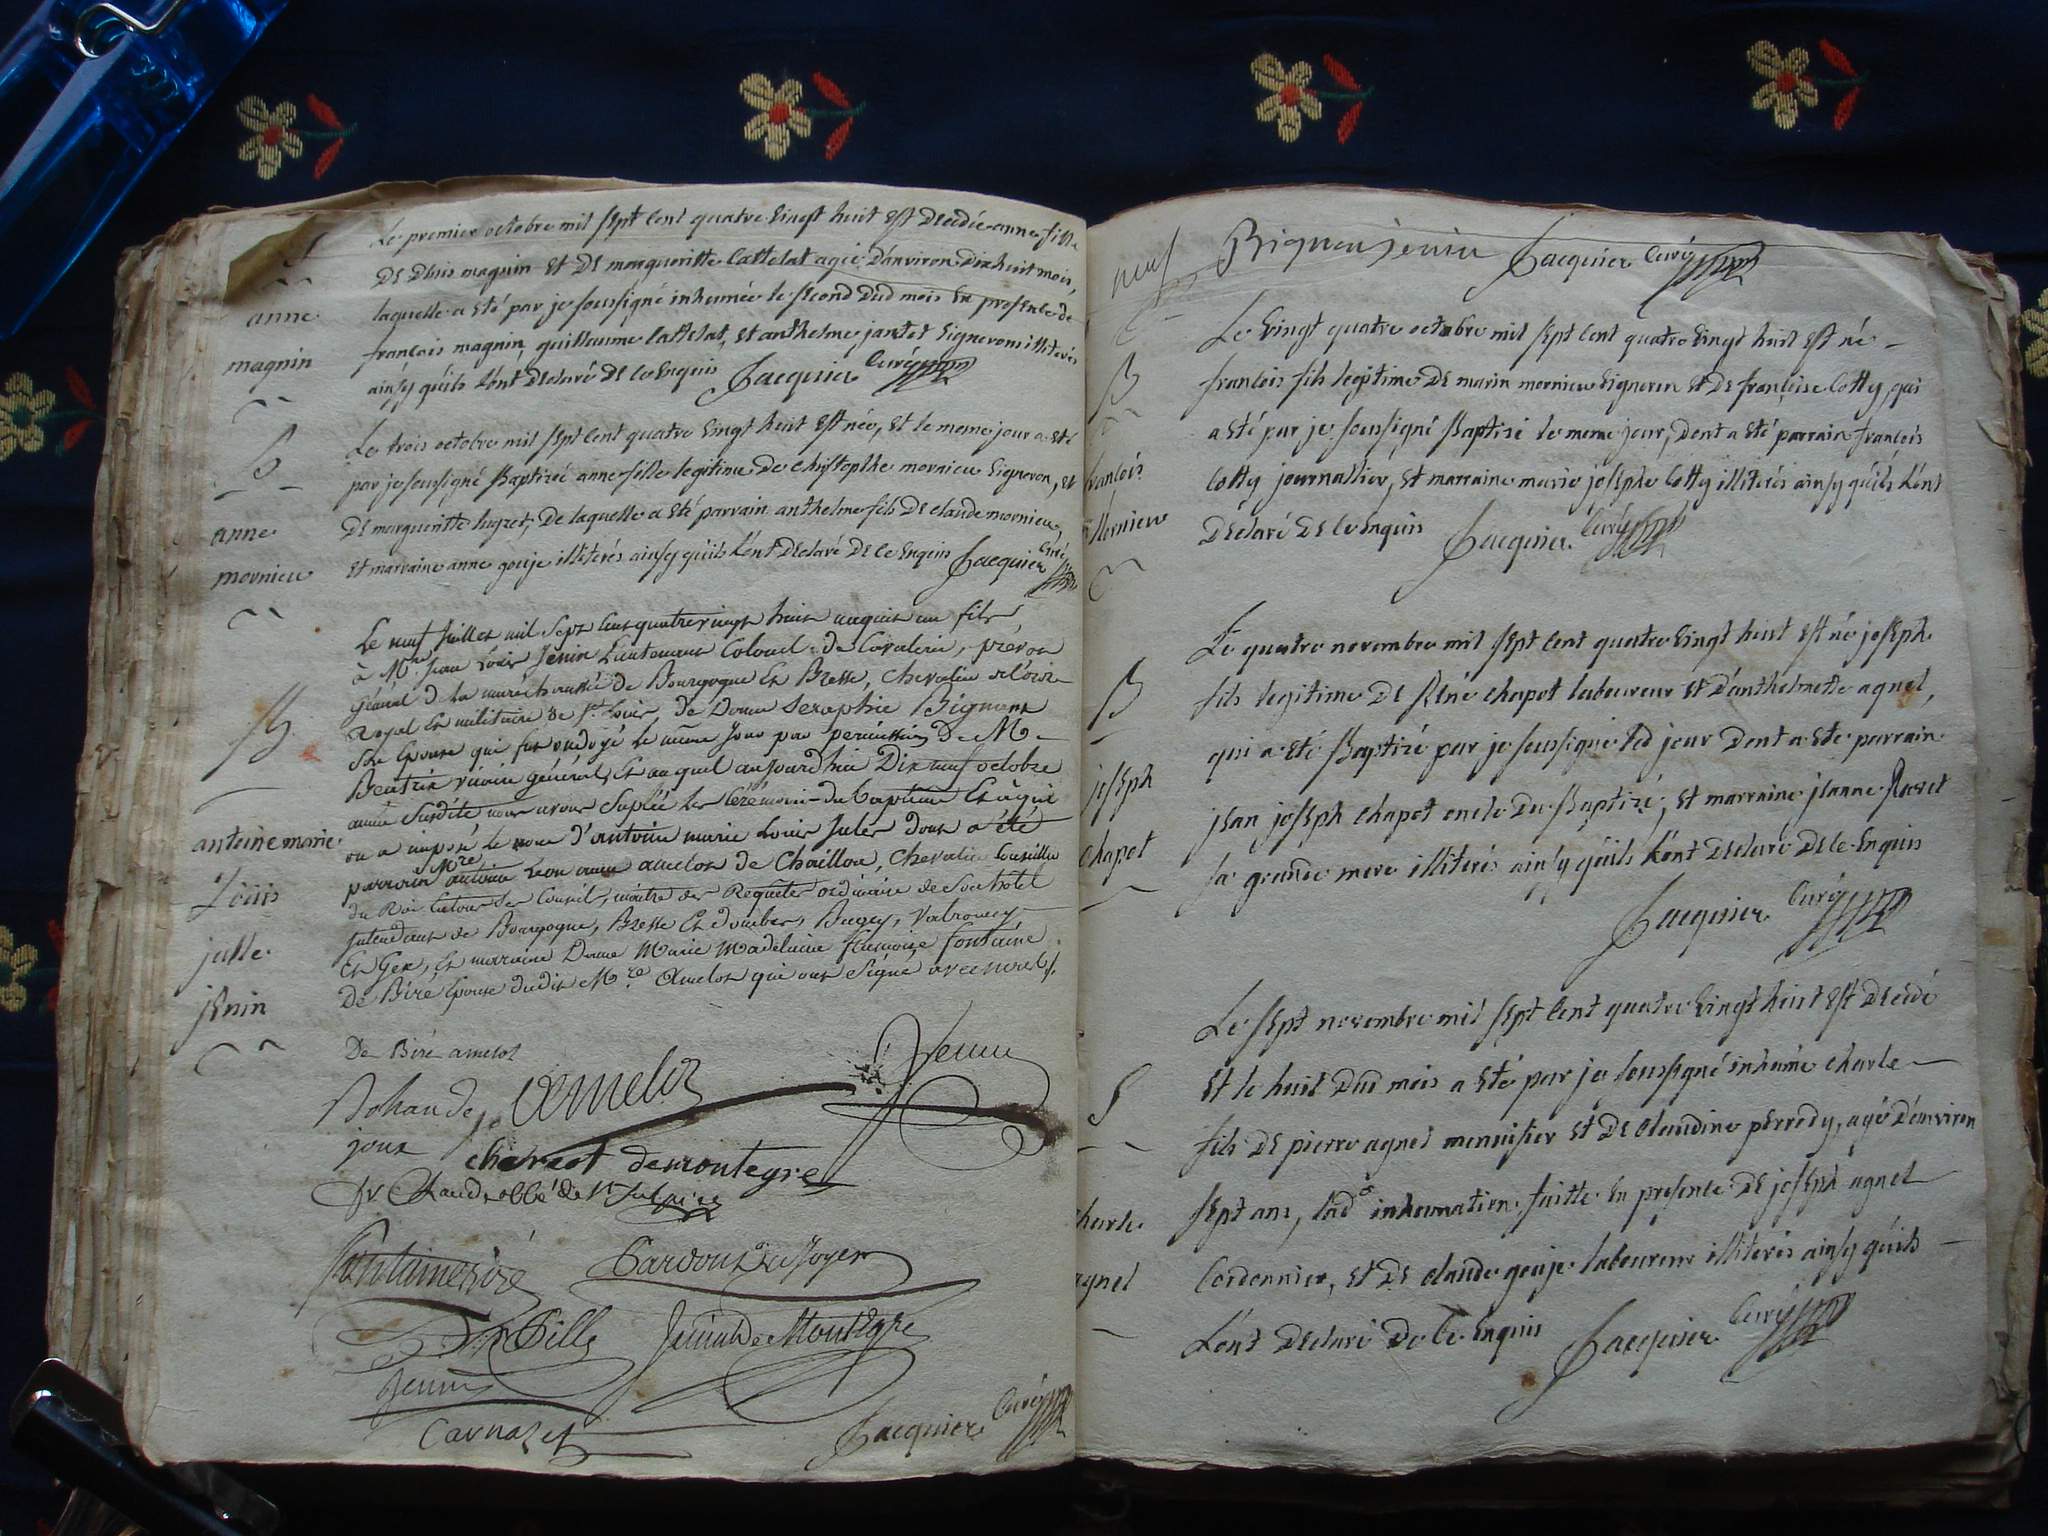 S
anne
magnin
Le premier octobre mil sept cent quatre vingt huit est decedée anne fille
De Denis magnin et De margueritte Cattelat agée d'anviron Dix huit mois,
laquelle a été par je soussigné inhumée le second dud mois en presence de
francois magnin, guillaume Cattelat, et anthelme jantet vignerons illiterés
ainsy quils lont Declaré De ce Enquis Jacquier Curé
B
anne
mornieu
Le trois octobre mil sept cent quatre vingt huit est née, et le meme jour a été
par je soussigné Baptizée anne fille legitime De Christophe mornieu vigneron, et
De margueritte hugret, De laquelle a été parrain anthelme fils De claude mornieu,
et marraine anne gouje illiterés ainsy quils lont Declaré De ce enquis Jacquier Curé
B
antoine marie
Loüis
julle
jenin
Le neuf Juillet mil sept cent quatrevingt huit naquit un fils,
à Mre jean Louis Jenin Lieutenant Colonel de Cavalerie, prévot
Général de la maréchaussée de Bourgogne et Bresse, Chevalier de l'ordre
Royal et militaire de St. Louis, de Dame Seraphie Bignant
Son Epouse qui fut ondoyé le même jour par permission De Mr
vicaire général, et auquel aujourdhui Dix neuf octobre
année susdite nous avons suplée les cérémonies du baptême et à qui
on a imposé le nom d'antoine marie Louis Jules dont a été
parrain Mre antoine Leon anne amelot de Chaillou, Chevalier Conseiller
du Roi en tous ses Conseils, maitre des Requetes ordinaire de Son hotel
Intendant de Bourgogne, Bresse et dombes, Bugey, Valromey
Et Gex, et maraine Dame Marie Madelaine françoise fontaine
De Biré Epouse dudit Mre Amelot qui ont signé avec nous
De Biré amelot
Amelot
Jenin
Rohan de
joux
charcot demontegre
fontaine Biré
Jenin de Montegre
Jenin
Carnazet
Jacquier Curé
neuf
Bignan jenin Jacquier Curé
B
francois
Mornieu
Le vingt quatre octobre mil sept cent quatre vingt huit est né
francois fils legitime De marin mornieu vigneron et De françoise Cotty, qui
a été par je soussigné Baptizé le meme jour, Dont a été parrain francois
Cotty journallier, et marraine marie josephe Cotty illiterés ainsy quils lont
Declaré De ce Enquis Jacquier Curé
B
joseph
chapot
Le quatre novembre mil sept cent quatre vingt huit est né joseph
fils legitime De Réné chapot laboureur et D'anthelmette agnel,
qui a été Baptizé par je soussigné led jour Dont a été parrain
jean joseph chapot oncle Du Baptizé, et marraine jeanne Ravet
sa grande mere illiterés ainsy quils lont Declaré De ce Enquis
Jacquier Curé
S
charle
agnel
Le sept novembre mil sept cent quatre vingt huit est Decédé
et le huit Dud mois a été par je soussigné inhumé charle
fils De pierre agnel mennisier et De claudine perrody, agé D'environ
sept ans, lade inhumation faitte en presence De joseph agnel
Cordonnier, et De claude gouje laboureur illiterés ainsy quils
lont Declaré De ce Enquis Jacquier Curé